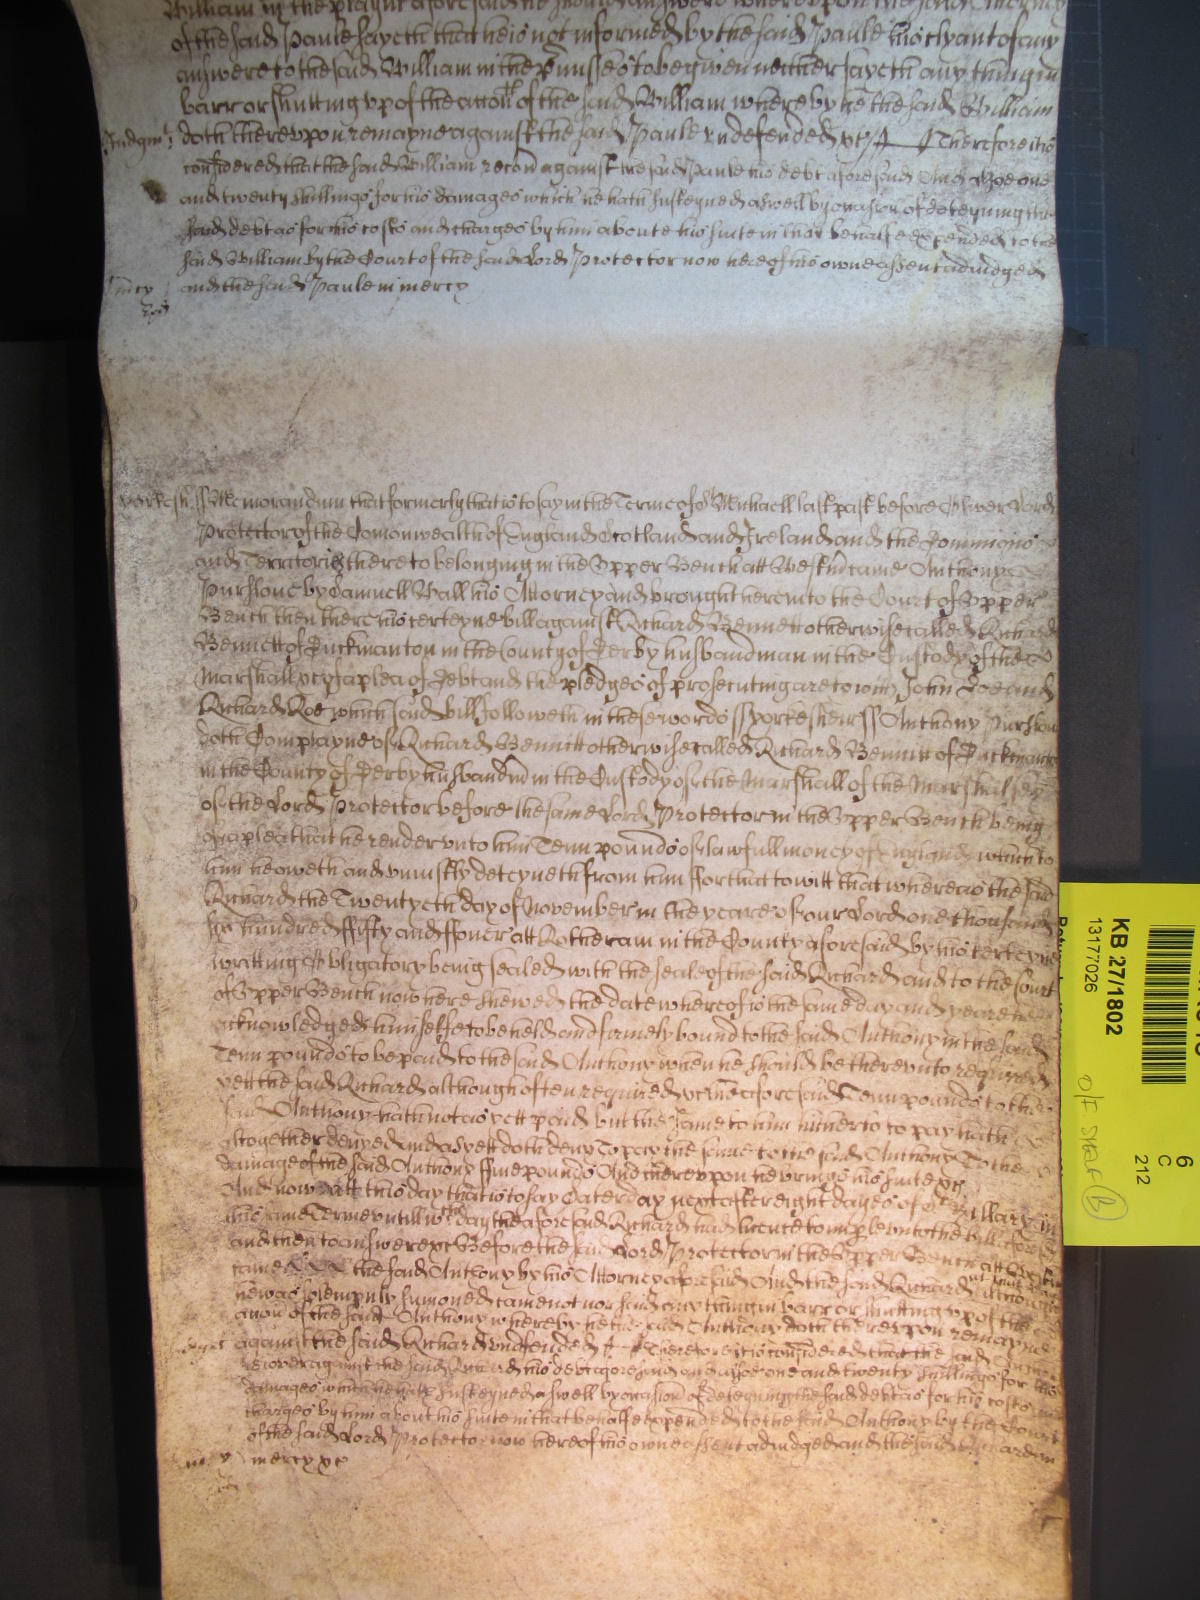 William in the playnt aforesaid he should answere whereupon the said Attorney
of the said Paule sayeth that he is not informed by the said Paule his clyant of any
answere to the said William in the p'misses to be given neither sayeth any thing in
barr or shutting vp of the accon of the said William whereby he the said William
Judgmt doth therevpon remayne against the said Paule vndefended &c Therefore it is
considered that the said William recou against the said Paule his debt aforesaid And alsoe one
and twenty shillings for his damages which he hath susteyned aswell by occasion of deteyning the
said debt as for his costs and charges by him aboute his suite in that behalfe expended to the
said William by the Court of the said Lord Protector now here of his owne assent adiudged
mcy and the said Paule in mercy
Yorkesh ss Memorandum that formerly that is to say in the Terme of St Michaell last past before Oliver Lord
Protector of the Comonwealth of England Scotland and Ireland and the Dominions
and Territories thereto belonging in the Vpper Bench att Westm came Anthony
Purslove by Samuell Wall his Attorney and brought here into the Court of Vpper
Bench then there his certeyne bill against Richard Bennett otherwise called Richard
Bennett of Duckmanton in the County of Derby husbandman in the Custody of the
Marshall &c of a plea of Debt and the pledges of prosecuting are to witt John Doe and
Richard Roe which said bill followeth in these words ss Yorkesheir ss Anthony Purslove
doth Complayne of Richard Bennitt otherwise called Richard Bennitt of Duckmanton
in the County of Derby husbandm in the Custody of the Marshall of the Marshalsey
of the Lord Protector before the same Lord Protector in the Vpper Bench being
of a plea that he render vnto him Tenn pounds of lawfull money of England which to
him he oweth and vniustly deteyneth from him ffor that to witt that whereas the said
Richard the Twentyeth day of November in the yeare of our Lord one thousand
six hundred ffifty and ffower att Rotheram in the County aforesaid by his certeyne
writting Obligatory being sealed with the seale of the said Richard and to the Court
of Vpper Bench now here shewed the date whereof is the same day and yeare
acknowledged himselfe to be held and firmely bound to the said Anthony in the said
Tenn pounds to be paid to the said Anthony when he should be therevnto required
yett the said Richard although often required &c the aforesaid Tenn pounds to the
said Anthony hath not as yett paid but the same to him hitherto to pay hath
altogether denyed and as yett doth deny To pay the same to the said Anthony To the
damage of the said Anthony ffiue pounds And therevpon he brings his suite &c
And now att this day that is to say Saterday next after eight dayes of St Hillary in
this same Terme vntill wch day the aforesaid Richard had licence to imparle vnto the bill aforesaid
and then to answere &c Before the said Lord Protector in the Vpper Bench att Westm
came the said Anthony by his Attorney aforesaid And the said Richard although
he was solempnly sumoned came not nor said any thing in barr or shutting vp of the
accon of the said Anthony whereby he the said Anthony doth therevpon remayne
against the said Richard vndefended &c Therefore it is considered that the said Anthony
recover against the said Richard his debt aforesaid and alsoe one and twenty shillings for his
damages which he hath susteyned aswell by occasion of deteyning the said debt as for his costs and
charges by him about his suite in that behalfe expended to the said Anthony by the Court
of the said Lord Protector now here of his owne assent adiudged and the said Richard in
mercy &c
KB 27/1802
13177026
6
C
212
O/F SHELF B